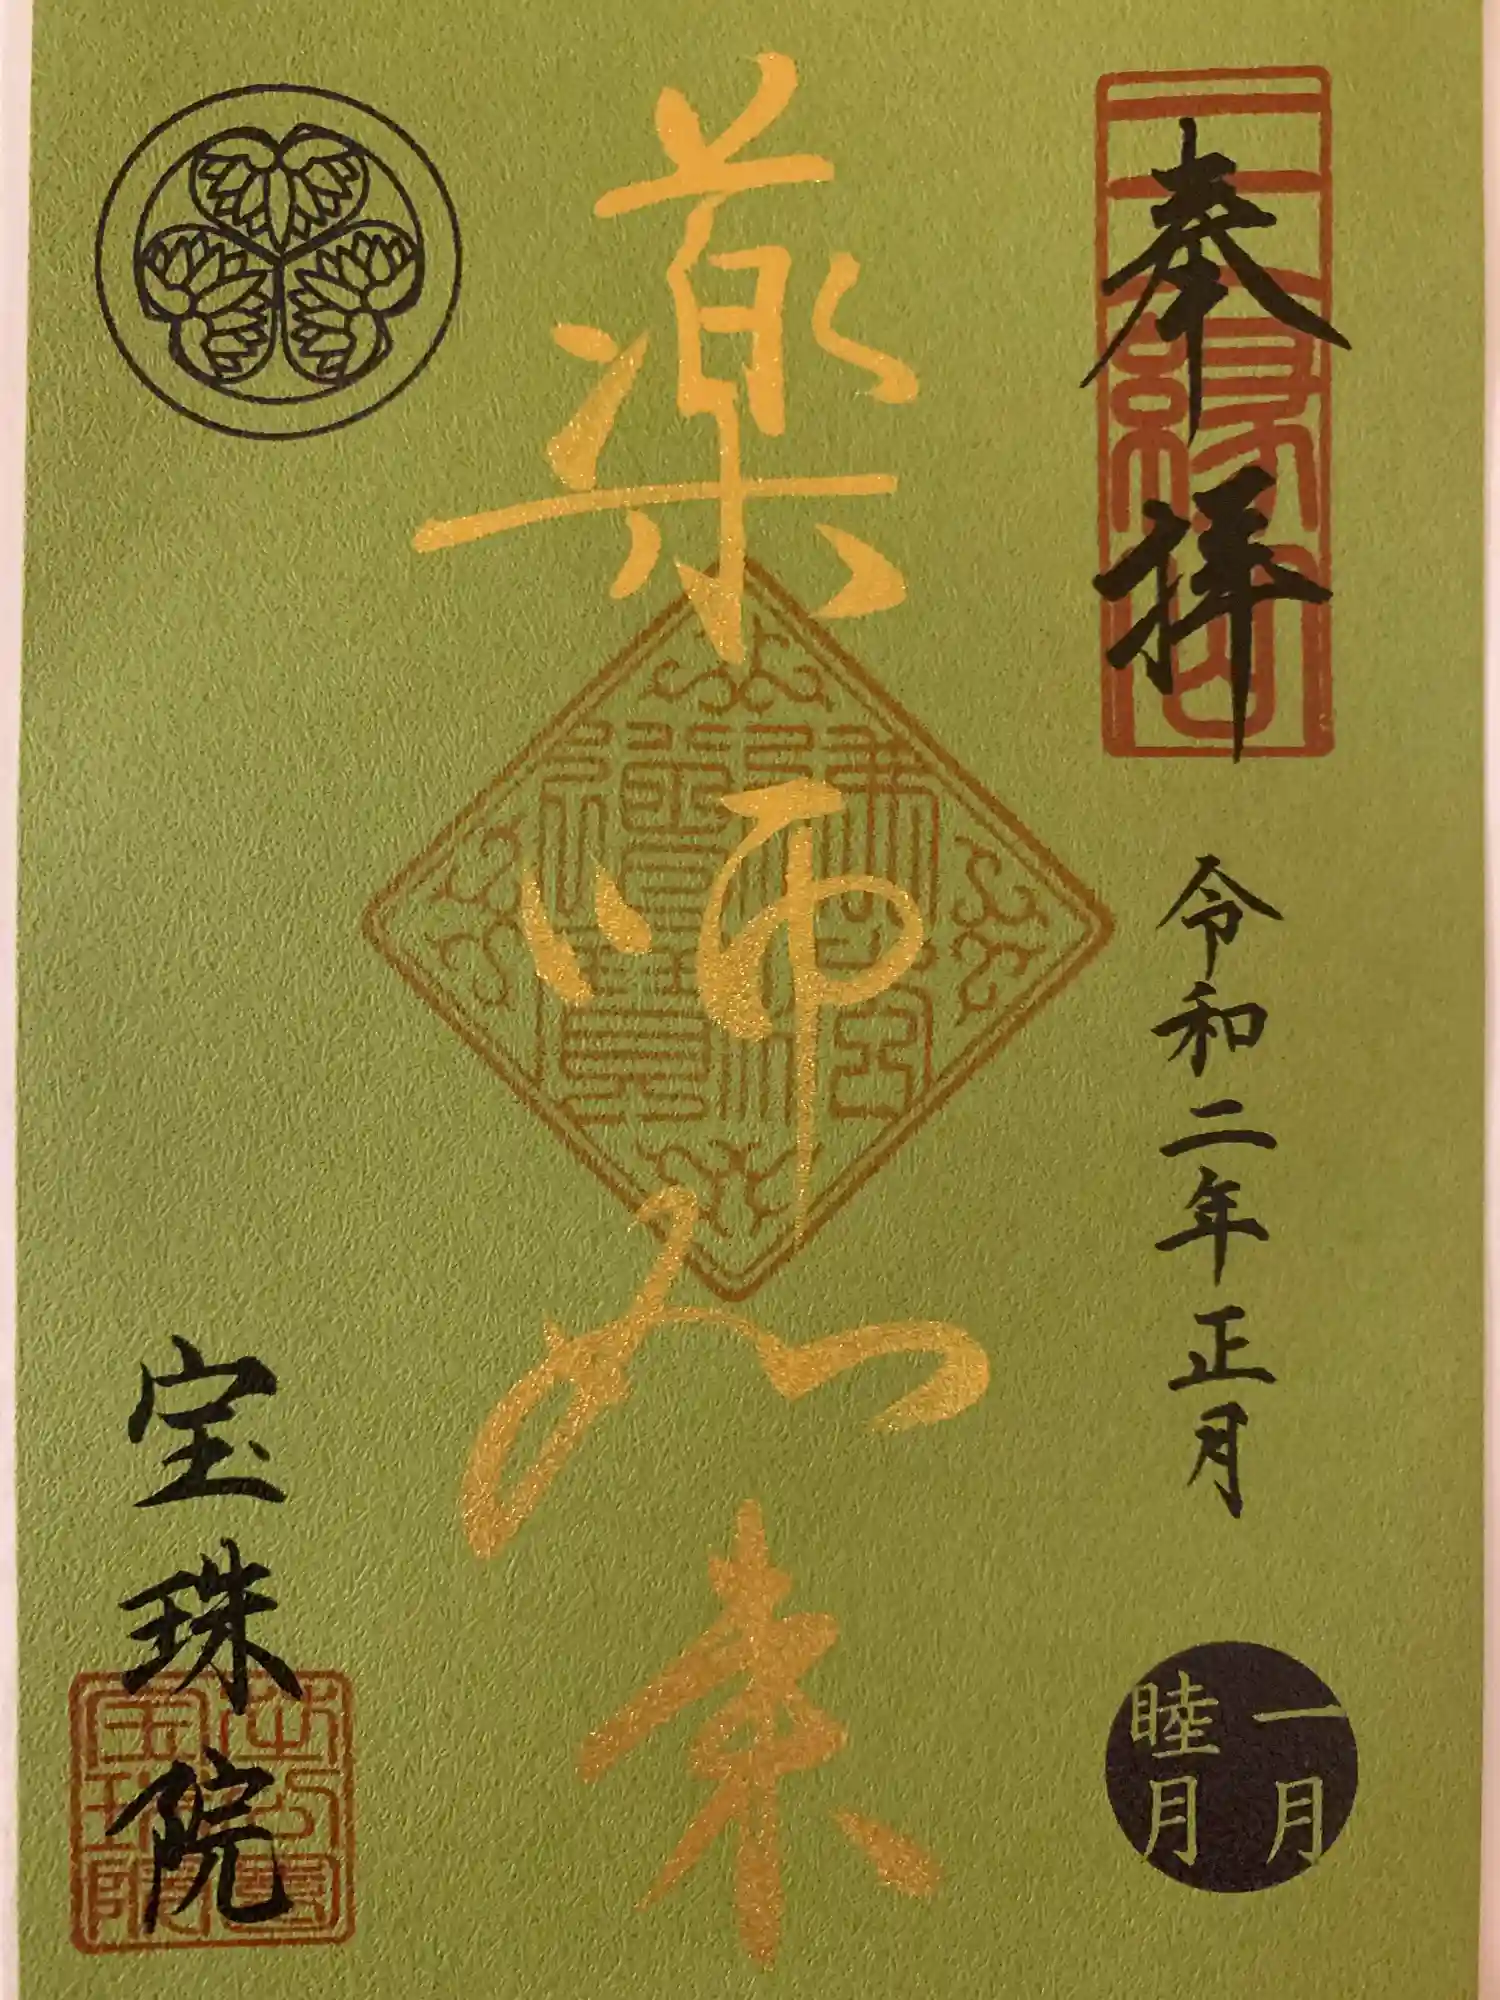 奉拝
令和二年正月
一月
睦月
薬師如来
宝珠院